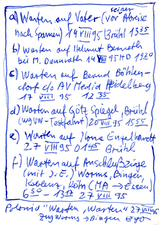 a) Warten auf Vater (vor seiner Abreise
nach Spanien) 14 VIII 95 Brühl 1335
b) Warten auf Helmut Benneth
bei M. Denureth 14 VIII 95 MO 1320
c) Warten auf Bernd Böhlen-
dorf c/o AV Media Heidelberg
VIII 95 12 35
d) Warten auf Götz Spiegel, Brühl
20 VIII 95 1555
e) Warten auf Ilona Engelhardt
27 VIII 95 0145 Brühl
f) Warten auf Anschlußzüge
(mit J.E.) Worms, Bingen
Koblenz, Köln (MA → Essen)
27 VIII 95
Polaroid "Warten, Warten" 27 VIII 95
Zug Worms → Bingen